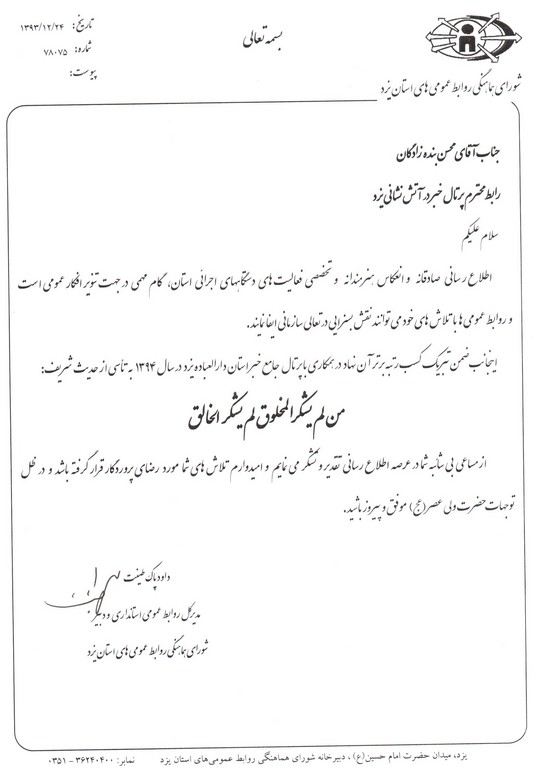 بسمه تعالی
تاریخ: ۱۳۹۳/۱۲/۲۴
شماره: ۷۸۰۷۵
پیوست:
شورای هماهنگی روابط عمومی های استان یزد
جناب آقای محسن بنده زادگان
رابط محترم پرتال خبر در آتش نشانی یزد
سلام علیکم
اطلاع رسانی صادقانه و انعکاس هنرمندانه و تخصصی فعالیت های دستگاههای اجرائی استان، گام مهمی در جهت تنویر افکار عمومی است
و روابط عمومی ها با تلاش های خود می توانند نقش بسزایی در تعالی سازمانی ایفا نمایند.
اینجانب ضمن تبریک کسب رتبه برتر آن نهاد در همکاری با پرتال جامع خبر استان دارالعباده یزد در سال ۱۳۹۴ به تأسی از حدیث شریف:
من لم یشکر المخلوق لم یشکر الخالق
از مساعی بی شائبه شما در عرصه اطلاع رسانی تقدیر و تشکر می نمایم و امیدوارم تلاش های شما مورد رضای پروردگار قرار گرفته باشد و در ظل
توجهات حضرت ولی عصر (عج) موفق و پیروز باشید.
داود پاک طینت
مدیرکل روابط عمومی استانداری و دبیر
شورای هماهنگی روابط عمومی های استان یزد
یزد، میدان حضرت امام حسین(ع) ، دبیرخانه شورای هماهنگی روابط عمومی‌های استان یزد نمابر: ۳۶۲۴۰۴۰۰ - ۰۳۵۱